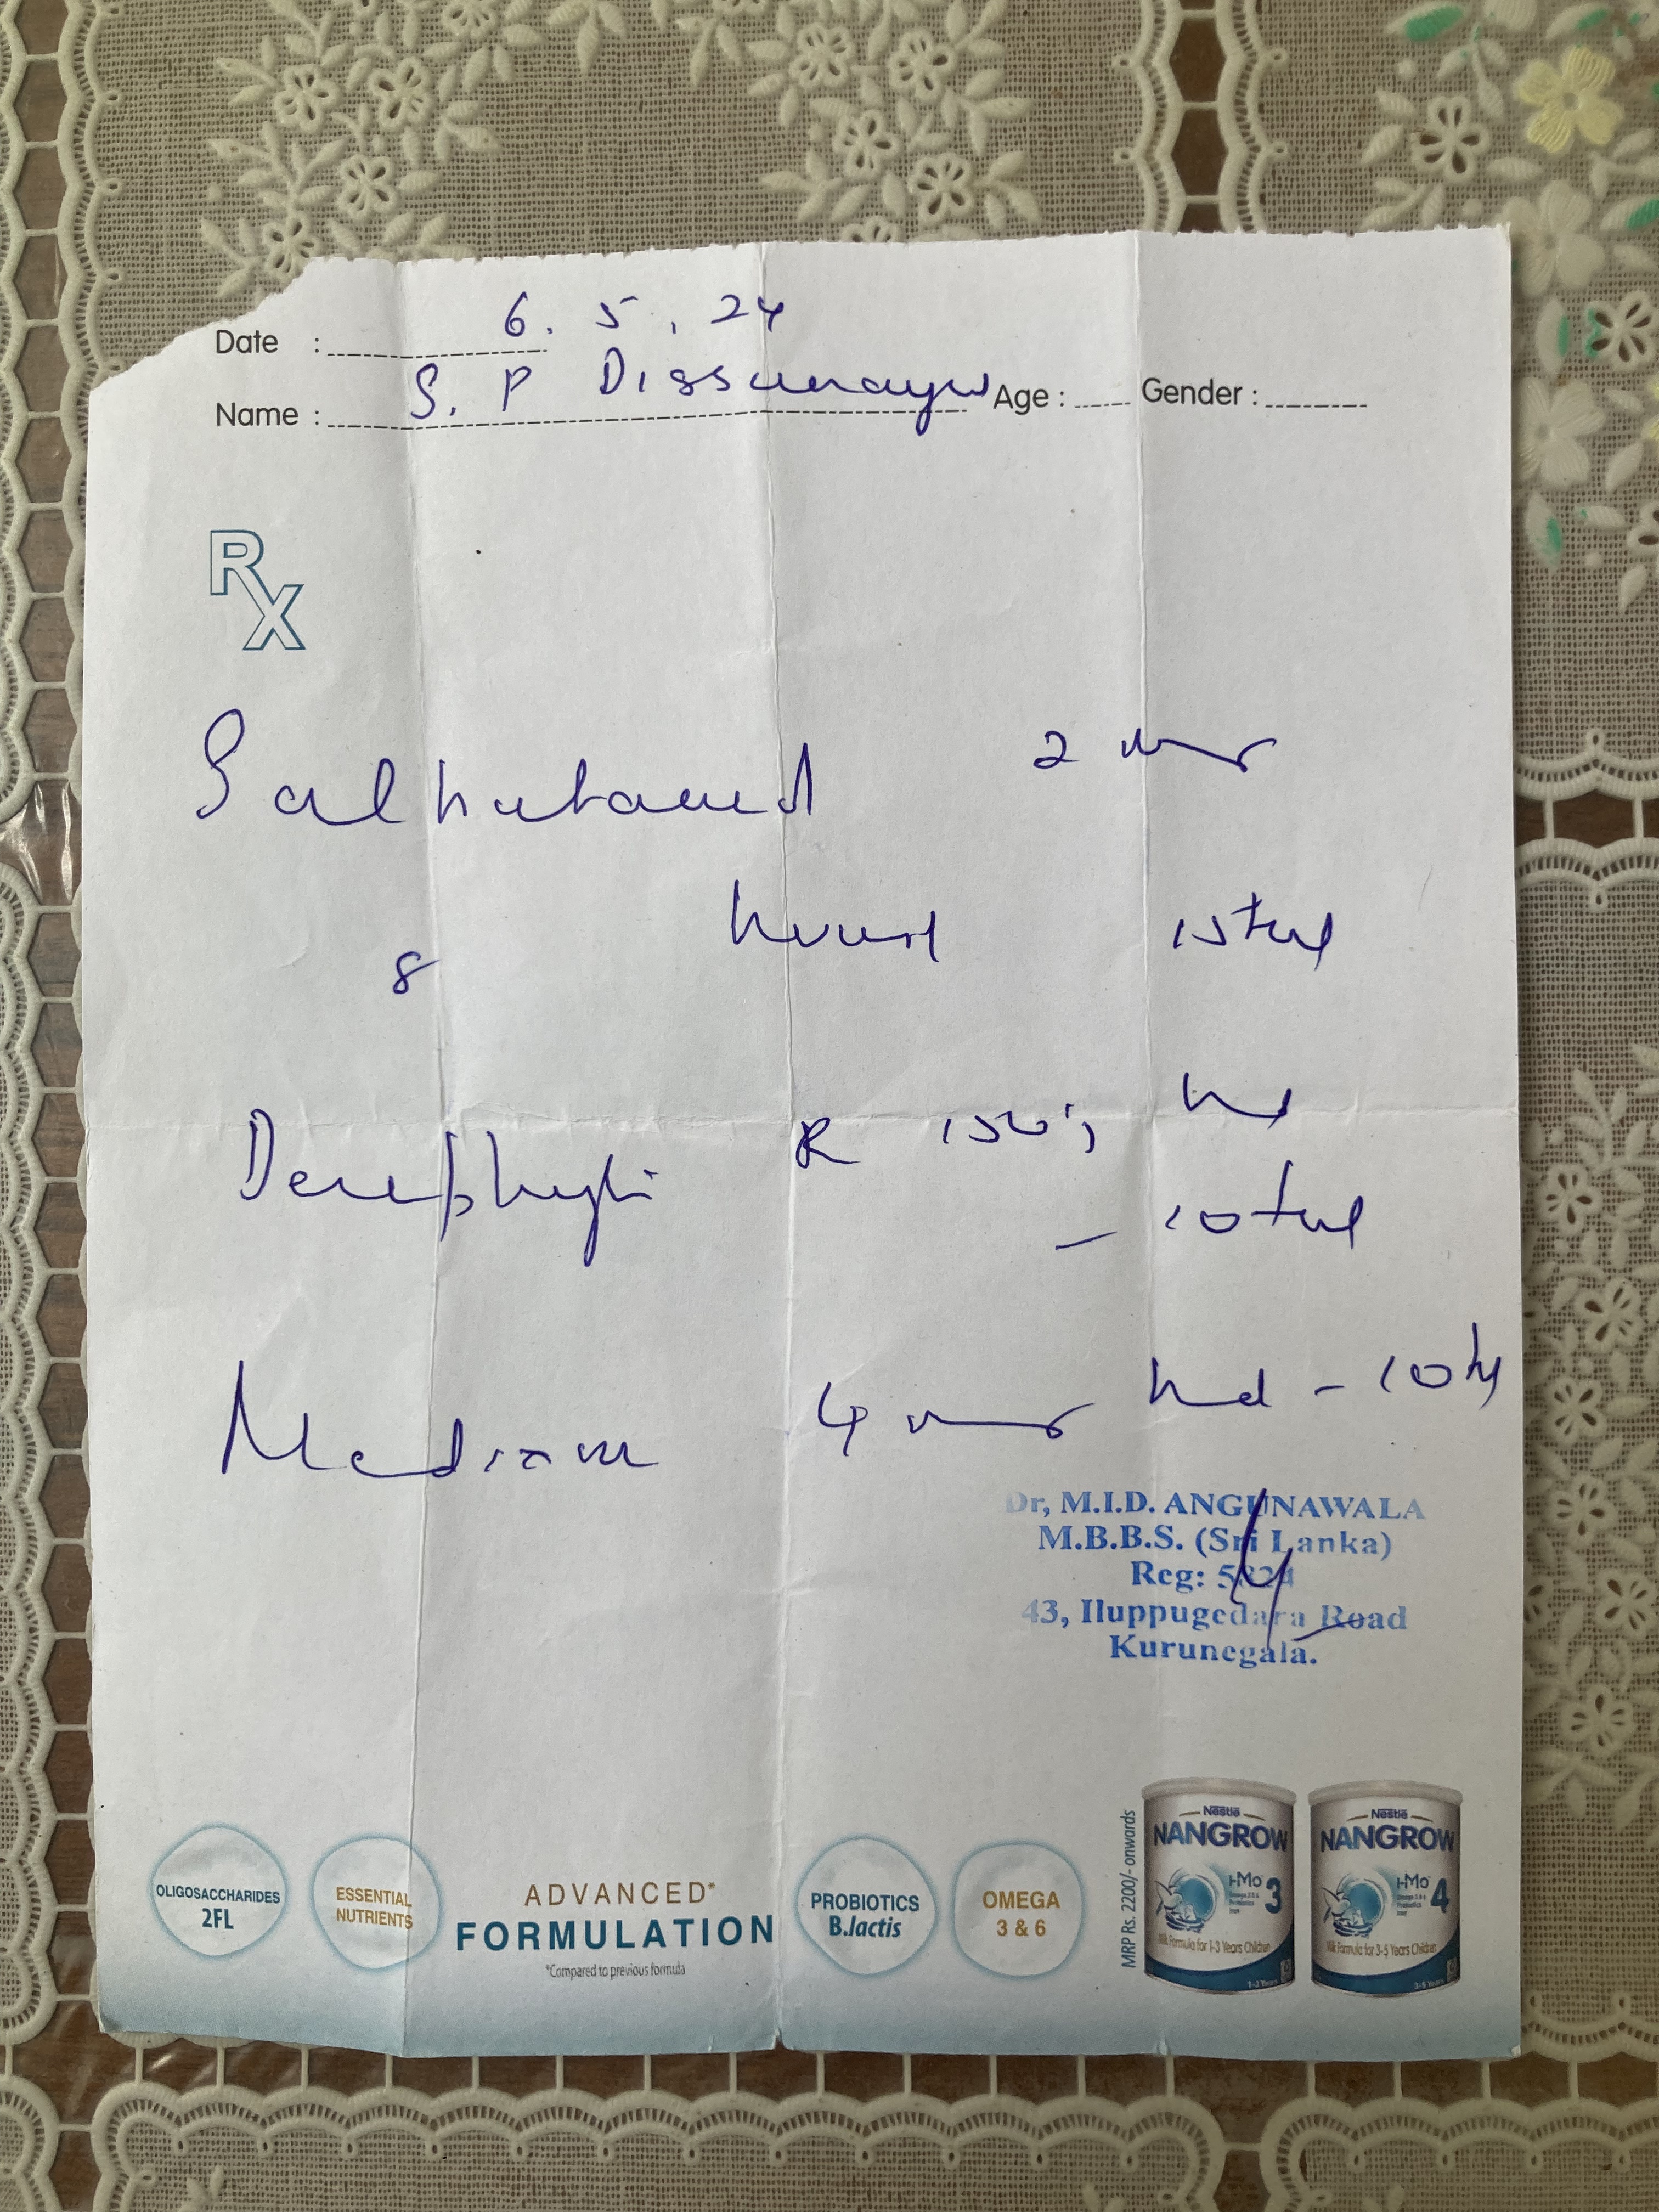 Date : 6. 5. 24
Name : S. P Dissanayw Age : Gender :
RX
Salbutamol 2 mg
8 hourly 15 tab
Deriphyllin R 150 ; bd
- 10 tab
Medixon 4 mg bd - 10 tab
Dr, M.I.D. ANGUNAWALA
M.B.B.S. (Sri Lanka)
Reg:
43, Iluppugedara Road
Kurunegala.
OLIGOSACCHARIDES
2FL
ESSENTIAL
NUTRIENTS
ADVANCED*
FORMULATION
*Compared to previous formula
PROBIOTICS
B.lactis
OMEGA
3 & 6
MRP Rs. 2200/- onwards
Nestlé
NANGROW
HMo 3
Milk Formula for 1-3 Years Children
1-3 Years
Nestlé
NANGROW
HMo 4
Milk Formula for 3-5 Years Children
3-5 Years